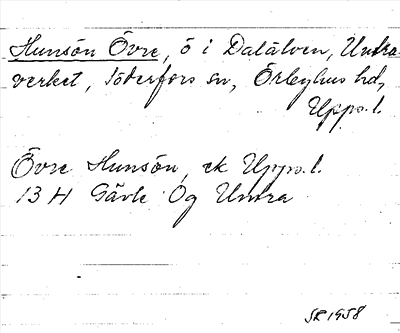 Hunsön Övre, ö i Dalälven, Untra
verket, Söderfors sn, Örbyhus hd,
Upps. l.
Övre Hunsön, ek Upps. l.
13 H Gävle Og Untra
SR 1958